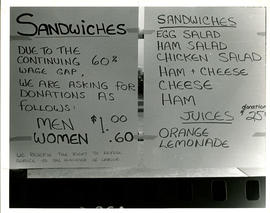 SANDWICHES
DUE TO THE
CONTINUING 60%
WAGE GAP,
WE ARE ASKING FOR
DONATIONS AS
FOLLOWS:
MEN $1.00
WOMEN .60
WE RESERVE THE RIGHT TO REFUSE
SERVICE TO THE MINISTER OF LABOUR
SANDWICHES
EGG SALAD
HAM SALAD
CHICKEN SALAD
HAM + CHEESE
CHEESE
HAM
JUICES
donation
$.25
ORANGE
LEMONADE